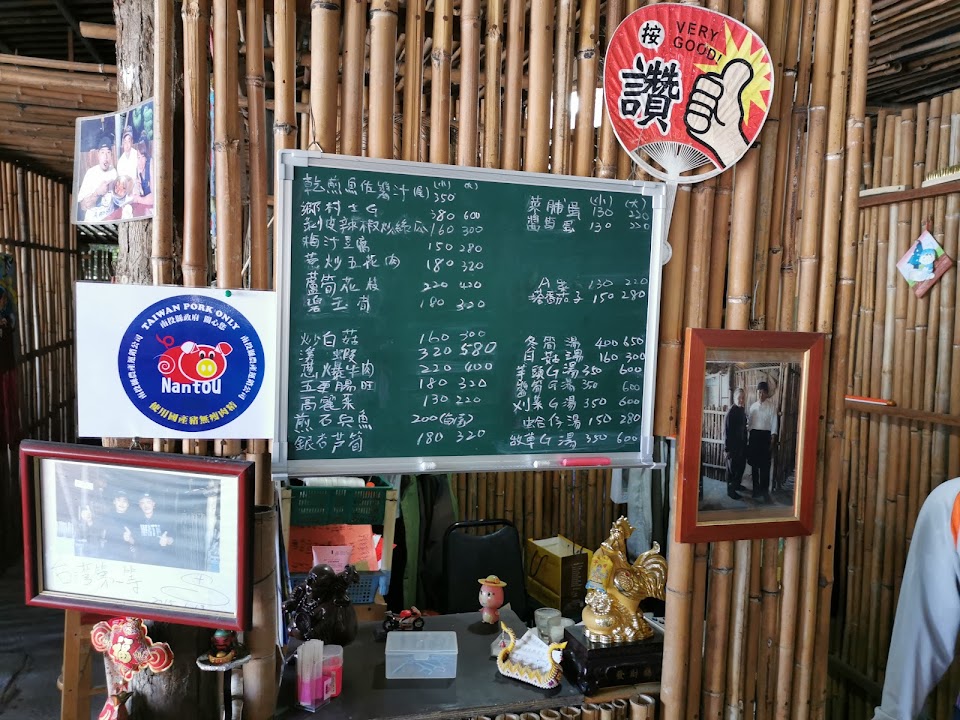 按 VERY
GOOD!
讚
(小) (大)
乾煎魚佐醬汁(尾) 350
鄉村土G 380 600
剝皮辣椒炒絲瓜 160 300
梅汁豆腐 150 280
炒五花肉 180 320
蘆筍花枝 220 420
碧玉筍 180 320
炒白菇 160 300
溪蝦 320 580
蔥爆牛肉 220 400
五更腸旺 180 320
高麗菜 130 220
煎石斑魚 200
銀杏芦筍 180 320
(小) (大)
菜脯蛋 130 220
醬筍蛋 130 220
A菜 130 220
落番茄子 150 280
冬筍湯 400 650
白菇湯 160 300
芋頭G湯 350 600
醬筍G湯 350 600
刈菜G湯 350 600
蛤仔湯 150 280
牧草G湯 350 600
TAIWAN PORK ONLY
南投縣政府 關心您
南投縣農產運銷公司
南投縣農產運銷公司
Nantou
使用國產豬無瘦肉精
台灣第一等
福